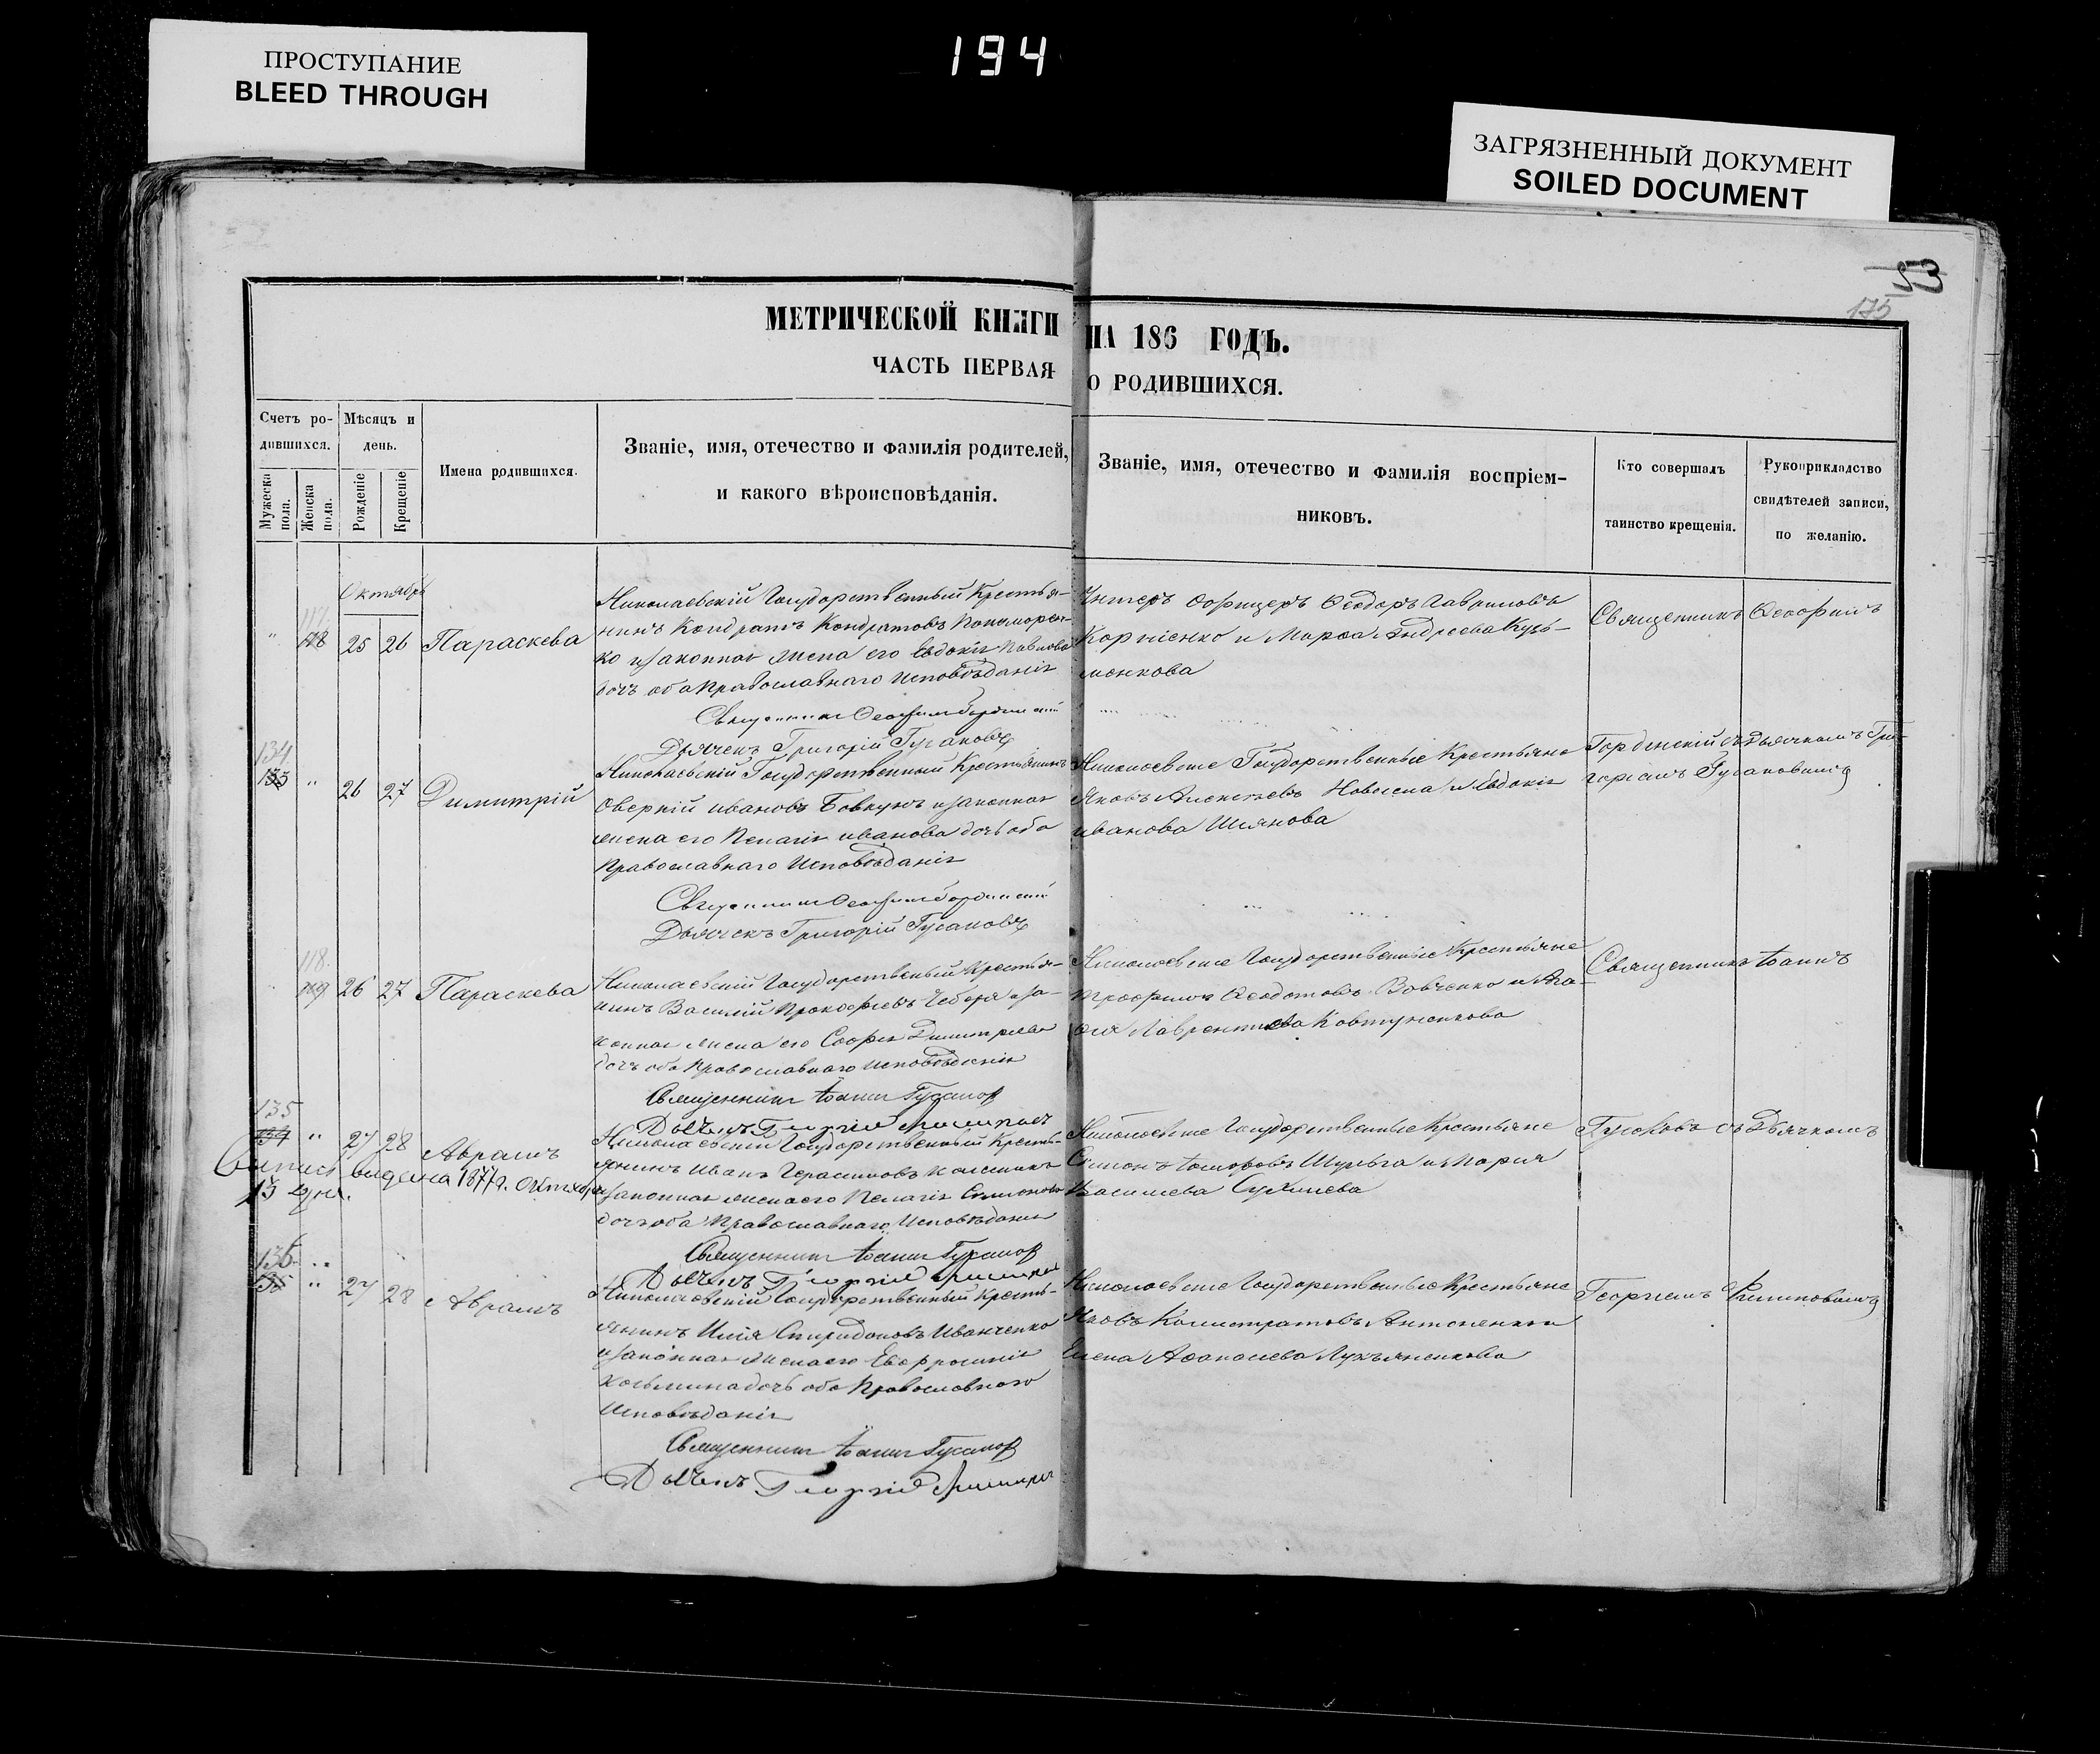 ПРОСТУПАНИЕ
BLEED THROUGH
194
ЗАГРЯЗНЕННЫЙ ДОКУМЕНТ
SOILED DOCUMENT
53
175
МЕТРИЧЕСКОЙ КНИГИ НА 186 ГОДЪ.
ЧАСТЬ ПЕРВАЯ О РОДИВШИХСЯ.
Счетъ ро-
дившихся.
Мужеска пола.
Женска пола.
Мѣсяцъ и
день.
Рожденіе
Крещеніе
Имена родившихся.
Званіе, имя, отечество и фамилія родителей,
и какого вѣроисповѣданія.
Званіе, имя, отечество и фамилія воспріем-
никовъ.
Кто совершалъ
таинство крещенія.
Рукоприкладство
свидѣтелей записи,
по желанію.
Октябрь
117
118
25 26 Параскева
Николаевскій Государственный Крестья-
нинъ Кондратъ Кондратовъ Пономорен-
ко и законная жена его Евдокія Павлова
дочь оба православнаго исповѣданія
Священникъ Ѳеофилъ
Дьячекъ Григорій Гусаковъ
Унтеръ Офицеръ Ѳеодоръ Гавриловъ
Корніенко и Марѳа Андреева Кузь-
менкова
Священникъ Ѳеофилъ
134
133 " 26 27 Димитрій
Николаевскій Государственный Крестьянинъ
Аверкій Ивановъ Бовкунъ и законная
жена его Пелагія Иванова дочь оба
Православнаго Исповѣданія
Священникъ Ѳеофилъ
Дьячекъ Григорій Гусаковъ
Николаевскіе Государственные Крестьяне
Яковъ Алексѣевъ и Евдокія
Иванова Шиянова
съ Дьячкомъ Гри-
горіемъ Гусаковымъ
118.
119 26 27 Параскева
Николаевскій Государственный Крестья-
нинъ Василій Прокофіевъ Чеберя и за-
конная жена его Софія Димитріева
дочь оба Православнаго исповѣданія
Священникъ Іоаннъ Гусаков
Дьячекъ Георгій
Николаевскіе Государственные Крестьяне
Трофимъ Ѳедотовъ Вовченко и Ага-
ѳія Лаврентиева Ковтуненкова
Священникъ Іоаннъ
135
134 " 27 28 Аврамъ
Выпись видана 1877 г. Октября
13 дня.
Николаевскій Государственный Кресть-
янинъ Иванъ Герасимовъ
и законная жена его Пелагія Симонова
дочь оба Православнаго Исповѣданія
Священникъ Іоаннъ Гусаков
Дьячекъ Георгій
Николаевскіе Государственные Крестьяне
Симонъ Шульга и Марія
Василиева
Гусаковъ съ Дьячкомъ
136 "
135 " 27 28 Аврамъ
Николаевскій Государственный Кресть-
янинъ Илія Спиридоновъ Иванченко
и законная жена его Евфросинія
Косьмина дочь оба Православнаго
Исповѣданія
Священникъ Іоаннъ Гусаков
Дьячекъ Георгій
Николаевскіе Государственные Крестьяне
Яковъ Калистратовъ
Елена Аѳанасиева Лукьяненкова
Георгіемъ Филиповымъ